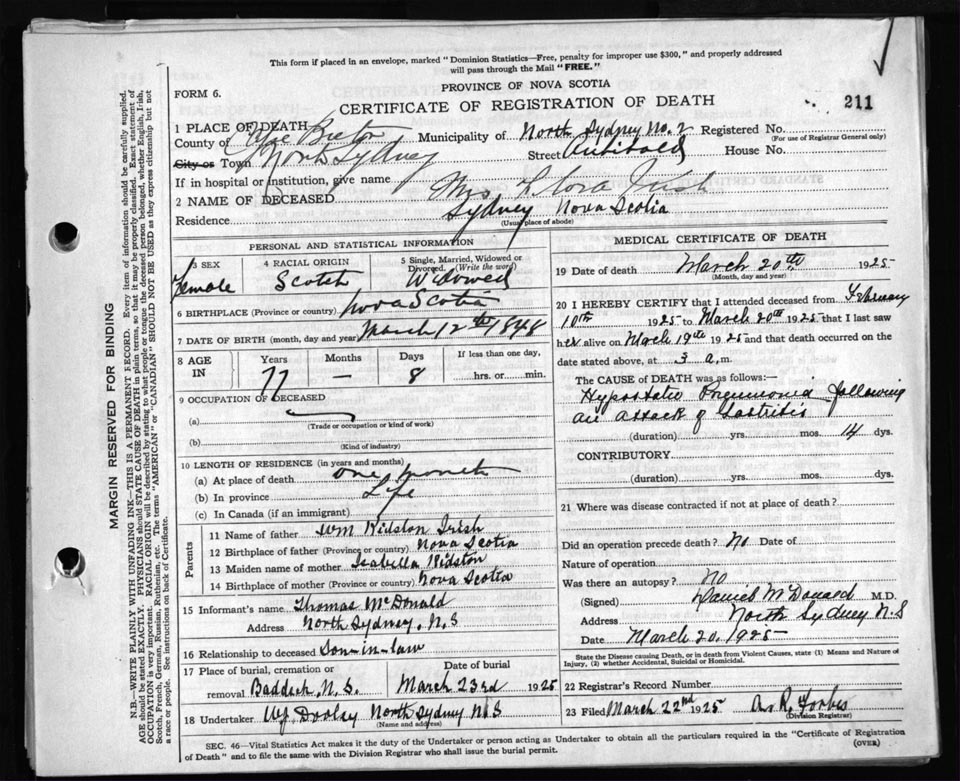 This form if placed in an envelope, marked "Dominion Statistics—Free, penalty for improper use $300," and properly addressed
will pass through the Mail "FREE."
PROVINCE OF NOVA SCOTIA
FORM 6.
CERTIFICATE OF REGISTRATION OF DEATH
211
1 PLACE OF DEATH
County of Cape Breton Municipality of North Sydney No. 2 Registered No.
(For use of Registrar General only)
City or Town North Sydney Street Archibald House No.
If in hospital or institution, give name
2 NAME OF DECEASED Mrs Flora Irish
Residence Sydney Nova Scotia
(Usual place of abode)
PERSONAL AND STATISTICAL INFORMATION
3 SEX Female
4 RACIAL ORIGIN Scotch
5 Single, Married, Widowed or Divorced. (Write the word) Widowed
6 BIRTHPLACE (Province or country) Nova Scotia
7 DATE OF BIRTH (month, day and year) March 12th 1848
8 AGE IN Years 77 Months — Days 8 If less than one day, hrs. or min.
9 OCCUPATION OF DECEASED
(a)
(Trade or occupation or kind of work)
(b)
(Kind of industry)
10 LENGTH OF RESIDENCE (in years and months)
(a) At place of death one month
(b) In province Life
(c) In Canada (if an immigrant)
Parents
11 Name of father Wm Kidston Irish
12 Birthplace of father (Province or country) Nova Scotia
13 Maiden name of mother Isabella Kidston
14 Birthplace of mother (Province or country) Nova Scotia
15 Informant's name Thomas McDonald
Address North Sydney, N.S
16 Relationship to deceased Son-in-law
17 Place of burial, cremation or removal Baddeck, N.S. Date of burial March 23rd 1925
18 Undertaker WJ Dooley North Sydney N.S
(Name and address)
MEDICAL CERTIFICATE OF DEATH
19 Date of death March 20th 1925
(Month, day and year)
20 I HEREBY CERTIFY that I attended deceased from February
10th 1925 to March 20th 1925 that I last saw
her alive on March 19th 1925 and that death occurred on the
date stated above, at 3 a. m.
The CAUSE OF DEATH was as follows:—
Hypostatic Pneumonia following
an attack of Gastritis
(duration) yrs. mos. 14 dys.
CONTRIBUTORY
(duration) yrs. mos. dys.
21 Where was disease contracted if not at place of death?
Did an operation precede death? No Date of
Nature of operation
Was there an autopsy? No
(Signed) Daniel McDonald M.D.
Address North Sydney N.S
Date March 20, 1925
State the Disease causing Death, or in death from Violent Causes, state (1) Means and Nature of
Injury, (2) whether Accidental, Suicidal or Homicidal.
22 Registrar's Record Number
23 Filed March 22nd 1925 R. Forbes
(Division Registrar)
SEC. 46—Vital Statistics Act makes it the duty of the Undertaker or person acting as Undertaker to obtain all the particulars required in the "Certificate of Registration
of Death" and to file the same with the Division Registrar who shall issue the burial permit. (OVER)
MARGIN RESERVED FOR BINDING
N.B.—WRITE PLAINLY WITH UNFADING INK—THIS IS A PERMANENT RECORD. Every item of information should be carefully supplied.
AGE should be stated EXACTLY. PHYSICIANS should STATE CAUSE OF DEATH in plain terms, so that it may be properly classified. Exact statement of
OCCUPATION is very important. RACIAL ORIGIN will be described by stating to what people or tongue the deceased person belonged, whether English, Irish,
Scotch, French, German, Russian, Ruthenian, etc. The terms "AMERICAN" or "CANADIAN" SHOULD NOT BE USED as they express citizenship but not
a race or people. See instructions on back of Certificate.